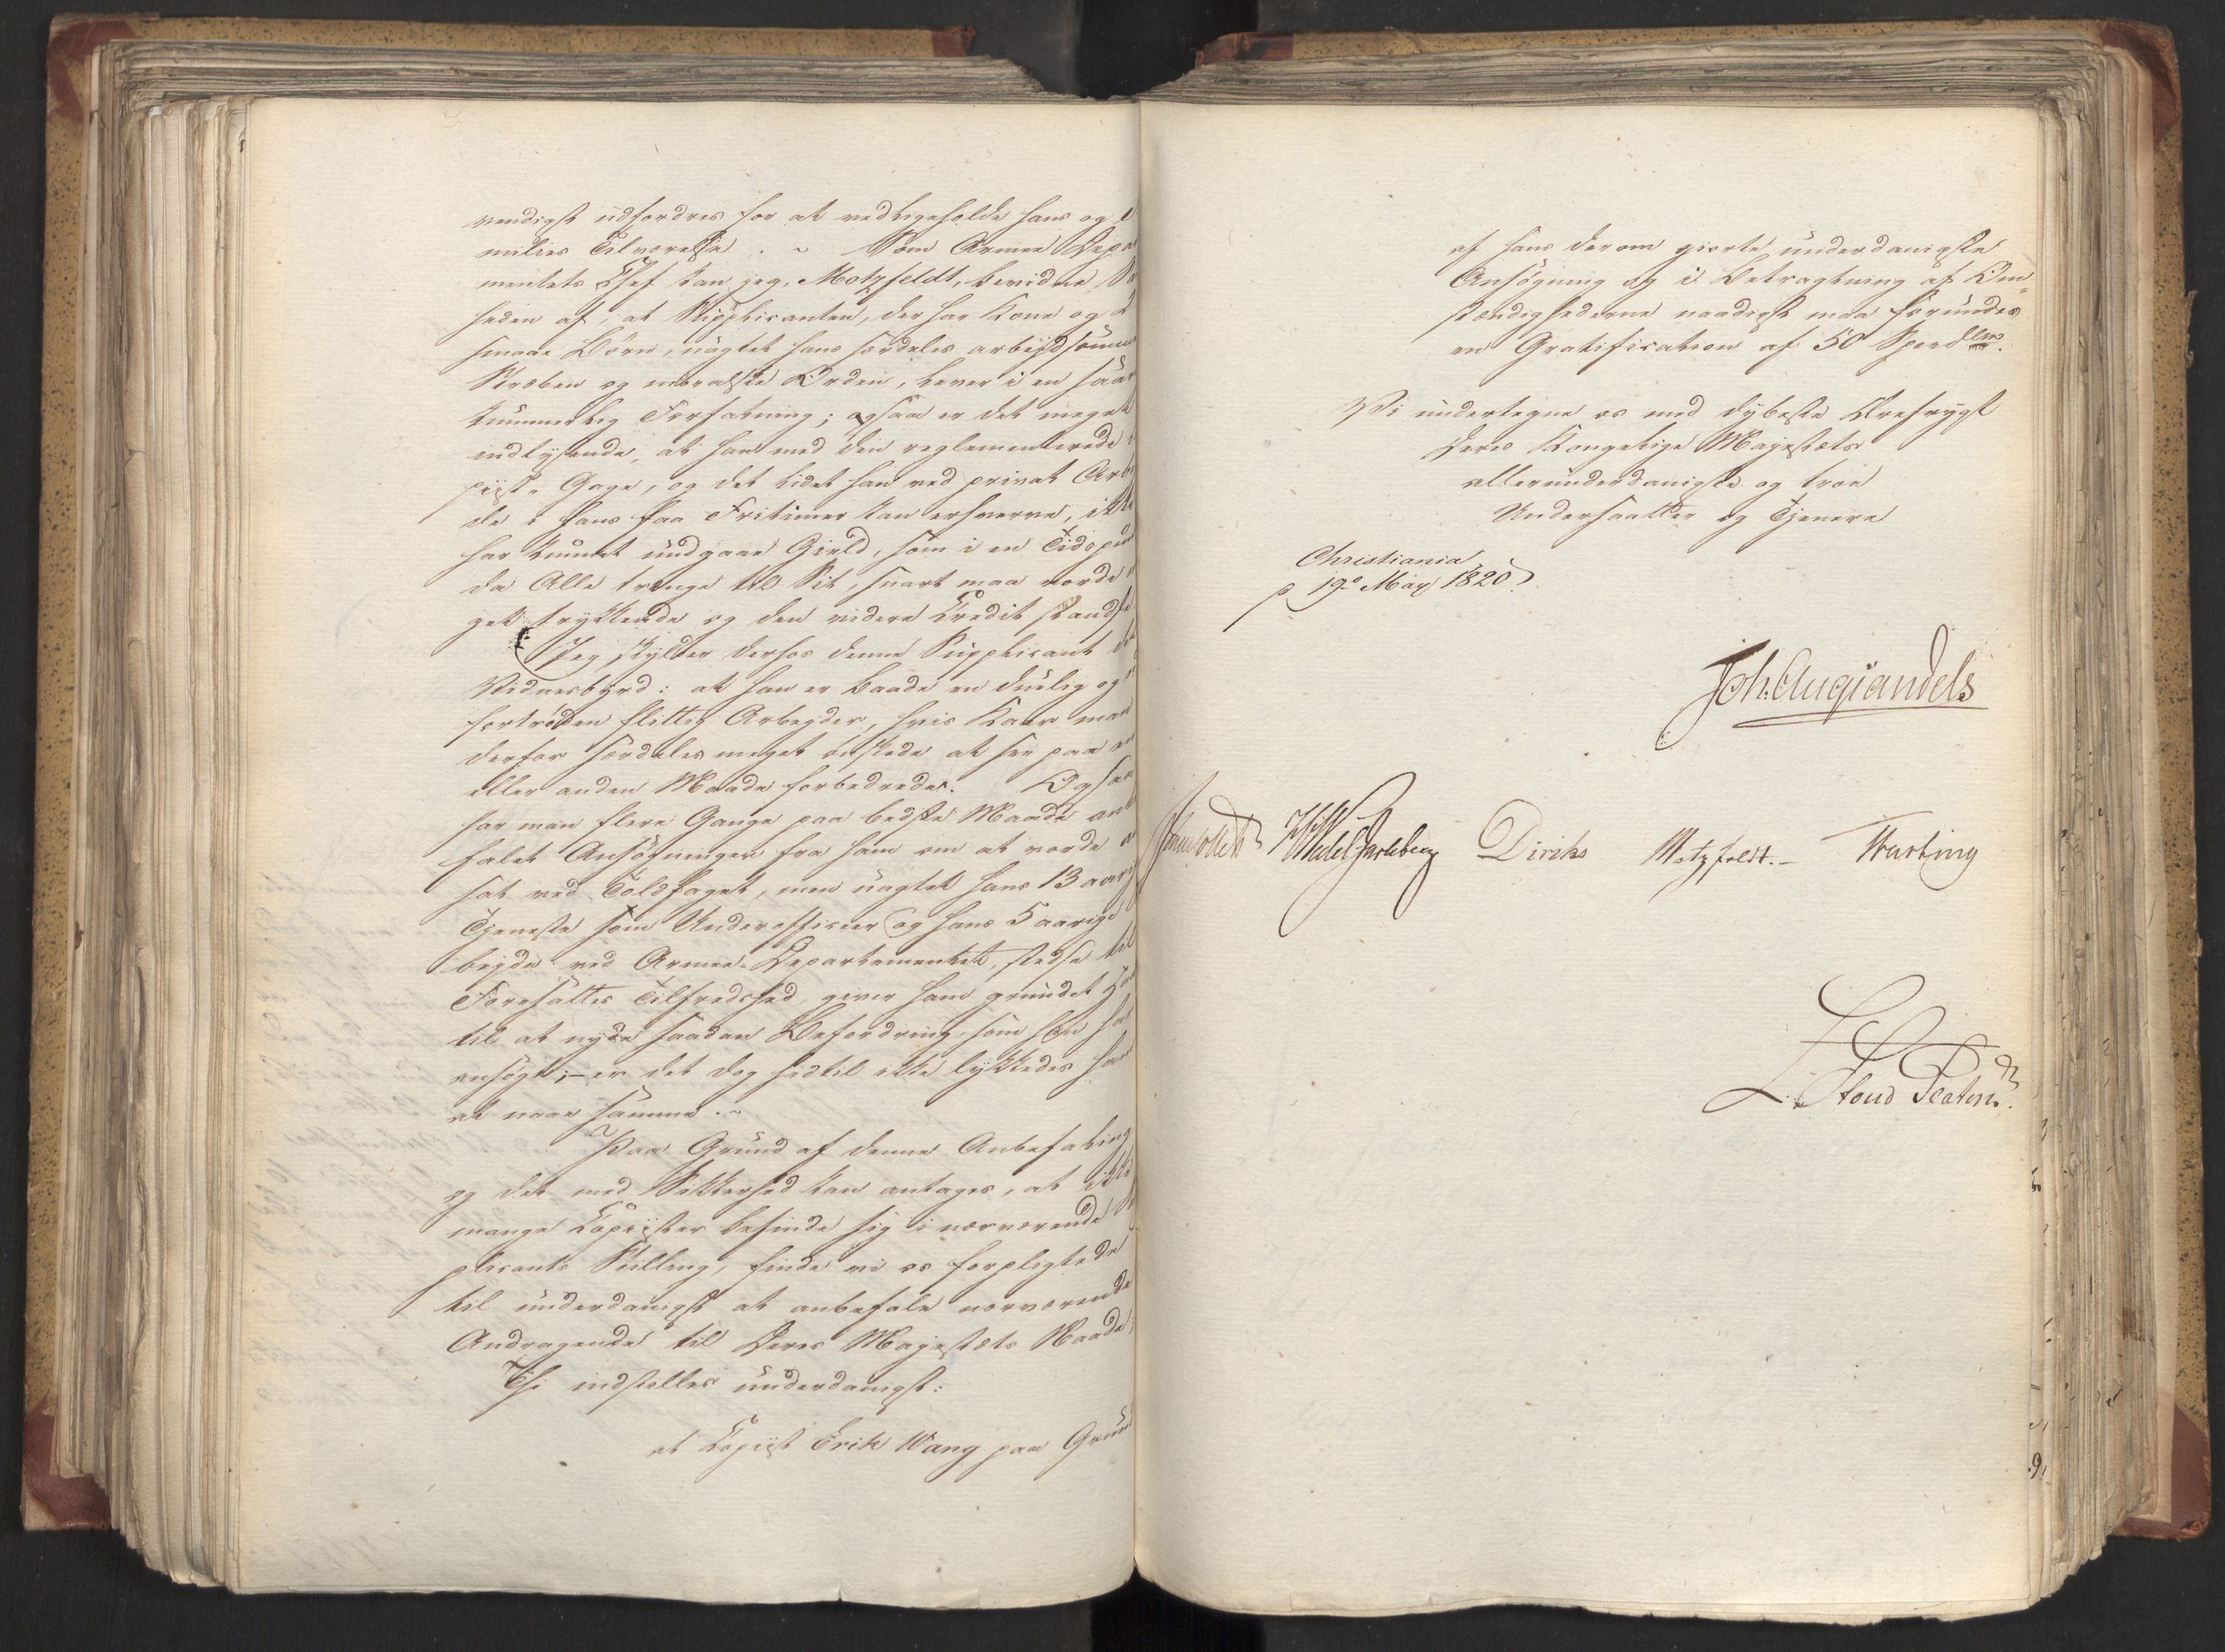 vendigst udfordres for at vedligeholde hans og
milies Tilværelse. ~ Som Armee Depa
mentets Chef kan jeg, Motzfeldt, bevidne
heden af, at Supplicanten, der har Kone og 2
smaae Børn, uagtet hans særdeles arbejdsomme
Stræben og moralske Orden, lever i en saare
kummerlig Forfatning; ogsaa er det meget
indlysende, at han med den reglementerede
piist-Gage, og det lidet han ved privat Arb
de i hans faa Fritimer kan erhverve, ikke
har kunnet undgaae Gield, som i en Tidspun
da Alle trænge til Sit, snart maa vorde
get trykkende og den videre Credit standse
Jeg skylder derhos denne Supplicant det
Vidnesbyrd: at han er baade en duelig og
fortrøden flittig Arbeyder, hvis Kaar man
derfor særdeles meget ønskede at see paa en
eller anden Maade forbedrede. Ogsaa
har man flere Gange paa bedste Maade anb
falet Ansøgninger fra ham om at vorde
sat ved Toldfaget, men uagtet hans 13 aarig
Tjeneste som Underofficeer og hans 5 aarige
beyde ved Armee-Departementet, stedse til
Foresattes Tilfredshed, giver ham grundet
til at nyde saadan Befordring, som han har
ansøgt; – er det dog hidtil ikke lykkedes ham
at naae samme. ~
Paa Grund af denne Anbefaling
og det med Sikkerhed kan antages, at ikke
mange Copiister befinde sig i nærværende
plicants Stilling, finde vi os forpligtede
til underdanigst at anbefale nærværende
Andragende til Deres Majestæts Naade;
Thi indstilles underdanigst:
at Copiist Erik Wang paa Grund
af hans derom giorte underdanigste
Ansøgning og i Betragtning af Om-
stændighederne naadigst maa forundes
en Gratification af 50 Specdlr.
Vi undertegne os med dybeste Ærefrygt
Deres Kongelige Majestæts
allerunderdanigste og troe
Undersaatter og Tjenere
Christiania
p 19de May 1820
Joh. Aug: Sandels
Jonas Collett HWedel Jarlsberg Diriks Motzfeldt. – Krebs
Stoud Platou.